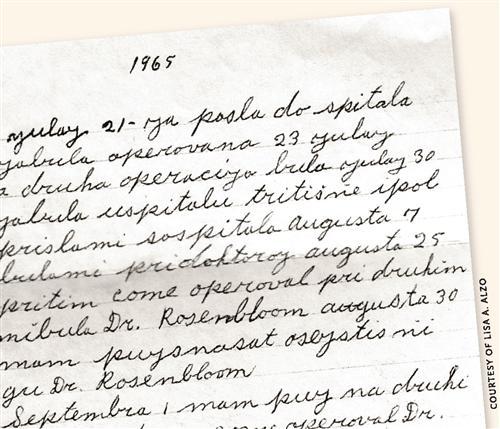 1965
yulay 21-ya posla do spitala
yabula operovana 23 yulay
a druha operacija bula yulay 30
yabula uspitalu tritisne ipol
prislami sospitala Augusta 7
bulami pridoktoroy augusta 25
pritim come operoval pri druhim
nibula Dr. Rosenbloom augusta 30
mam puysnasat osvistis ni
gu Dr. Rosenbloom
Septembra 1 mam puy na druhi
operoval Dr.
COURTESY OF LISA A. ALZO